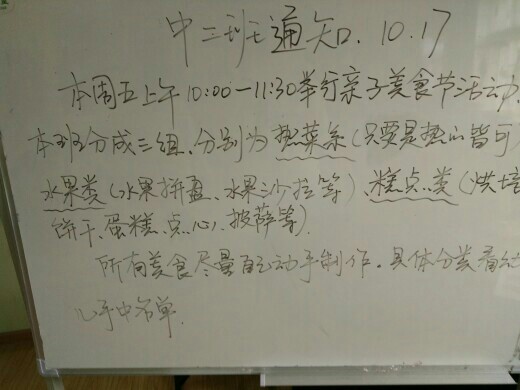 中二班通知. 10.17
本周五上午10:00-11:30举行亲子美食节活动.
本班分成三组、分别为热菜系(只要是热的皆可
水果类(水果拼盘、水果沙拉等)、糕点类(烘培
饼干、蛋糕、点心、披萨等).
所有美食尽量自己动手制作。具体分类看幼
儿手中名单.